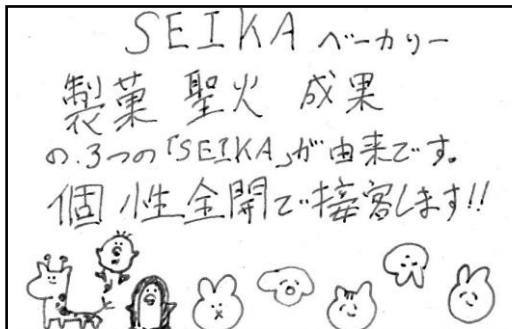 SEIKA ベーカリー
製菓 聖火 成果
の.3つの「SEIKA」が由来です。
個性全開で接客します!!